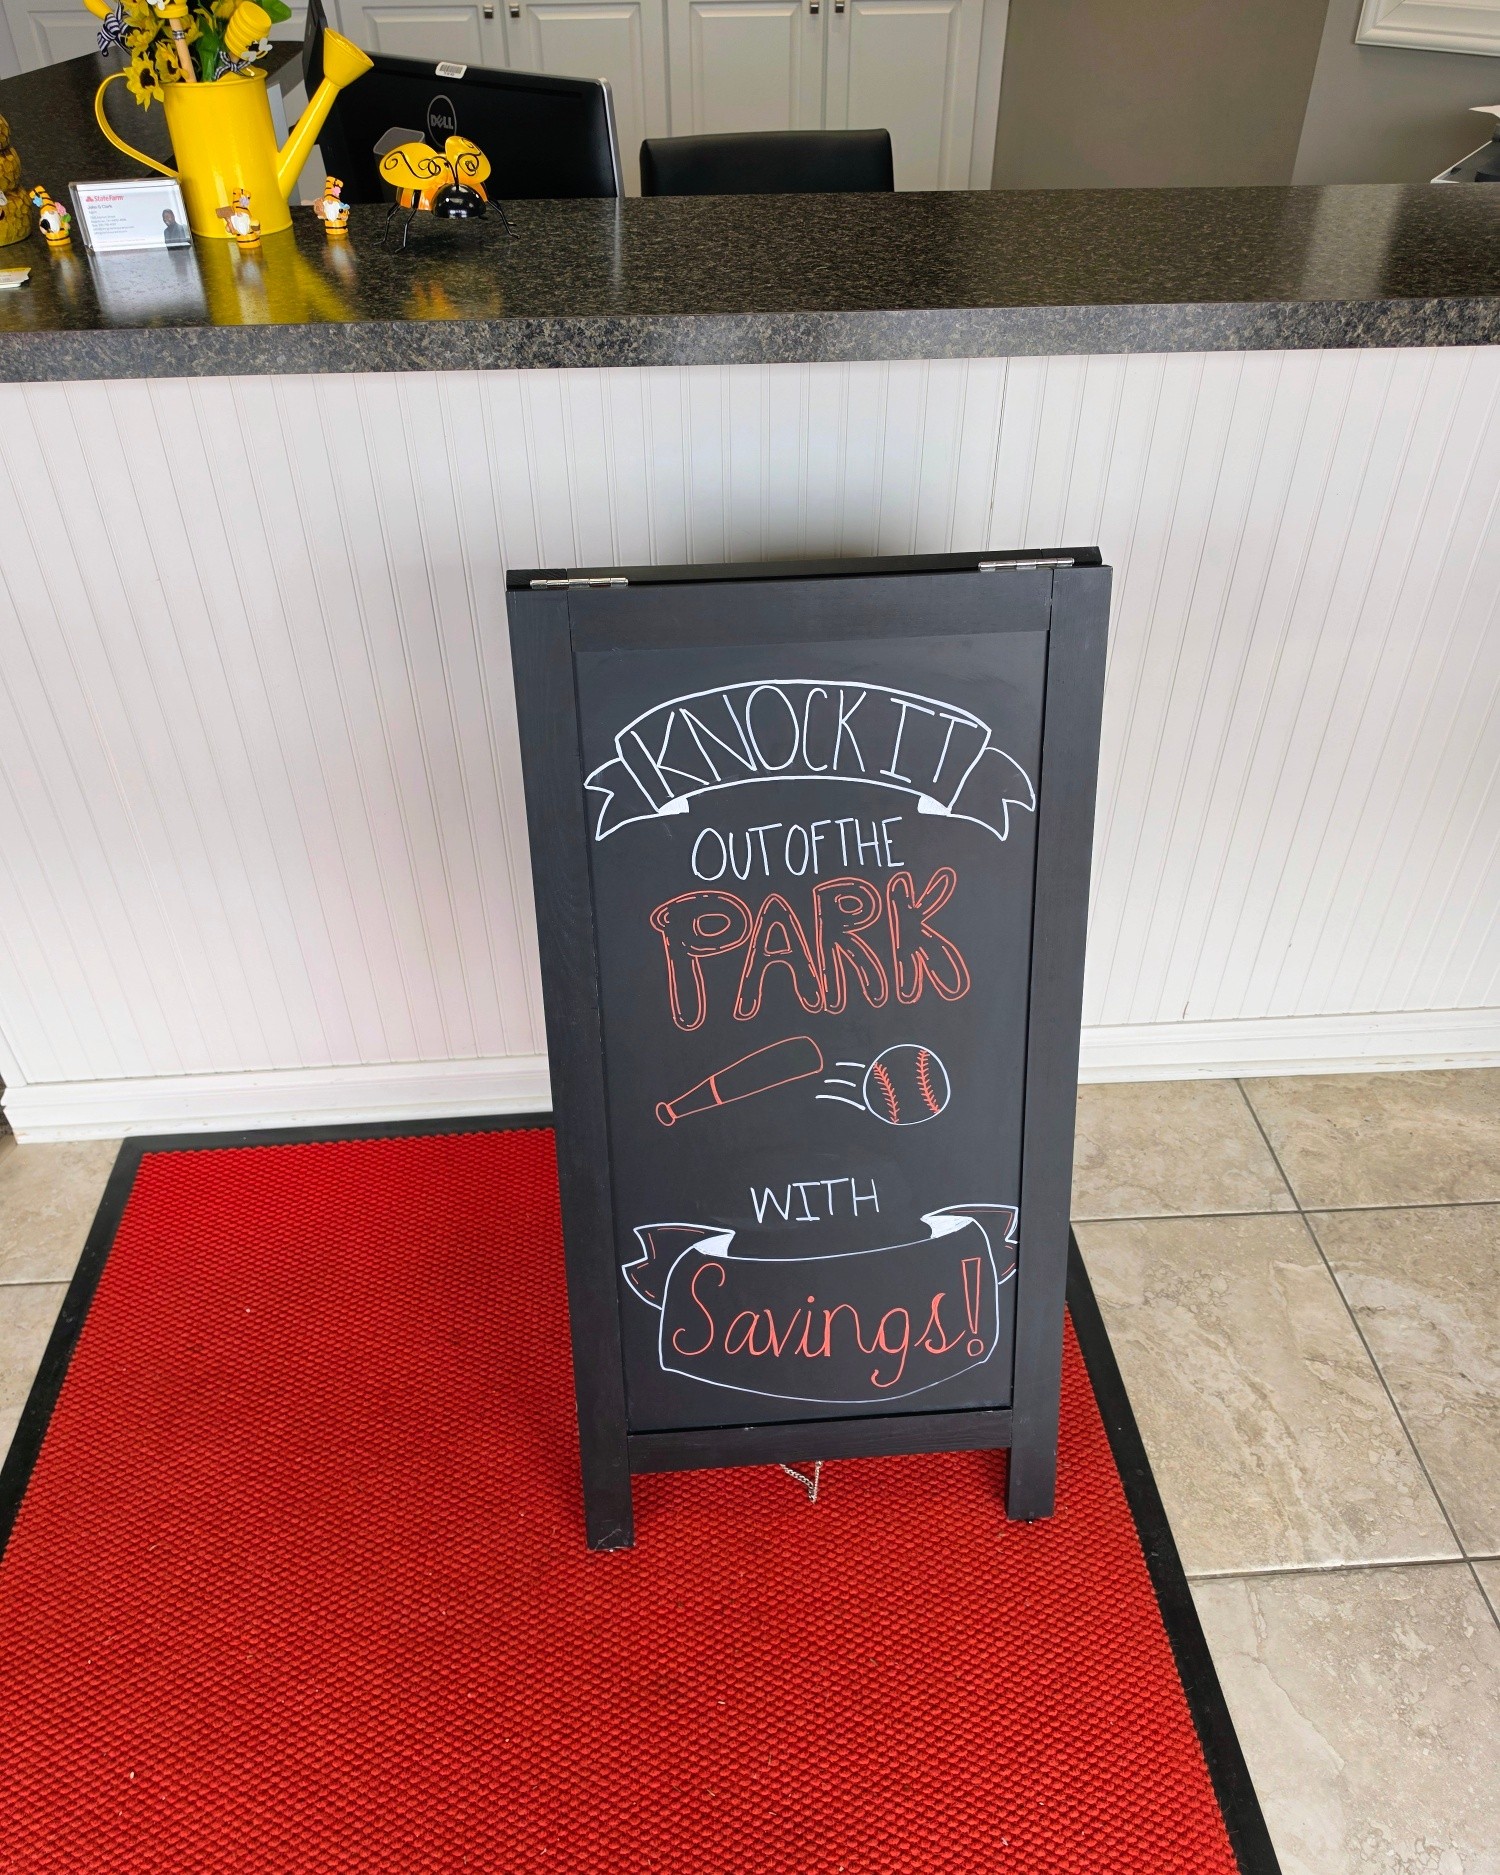 DELL
StateFarm
KNOCK IT
OUT OF THE
PARK
WITH
Savings!